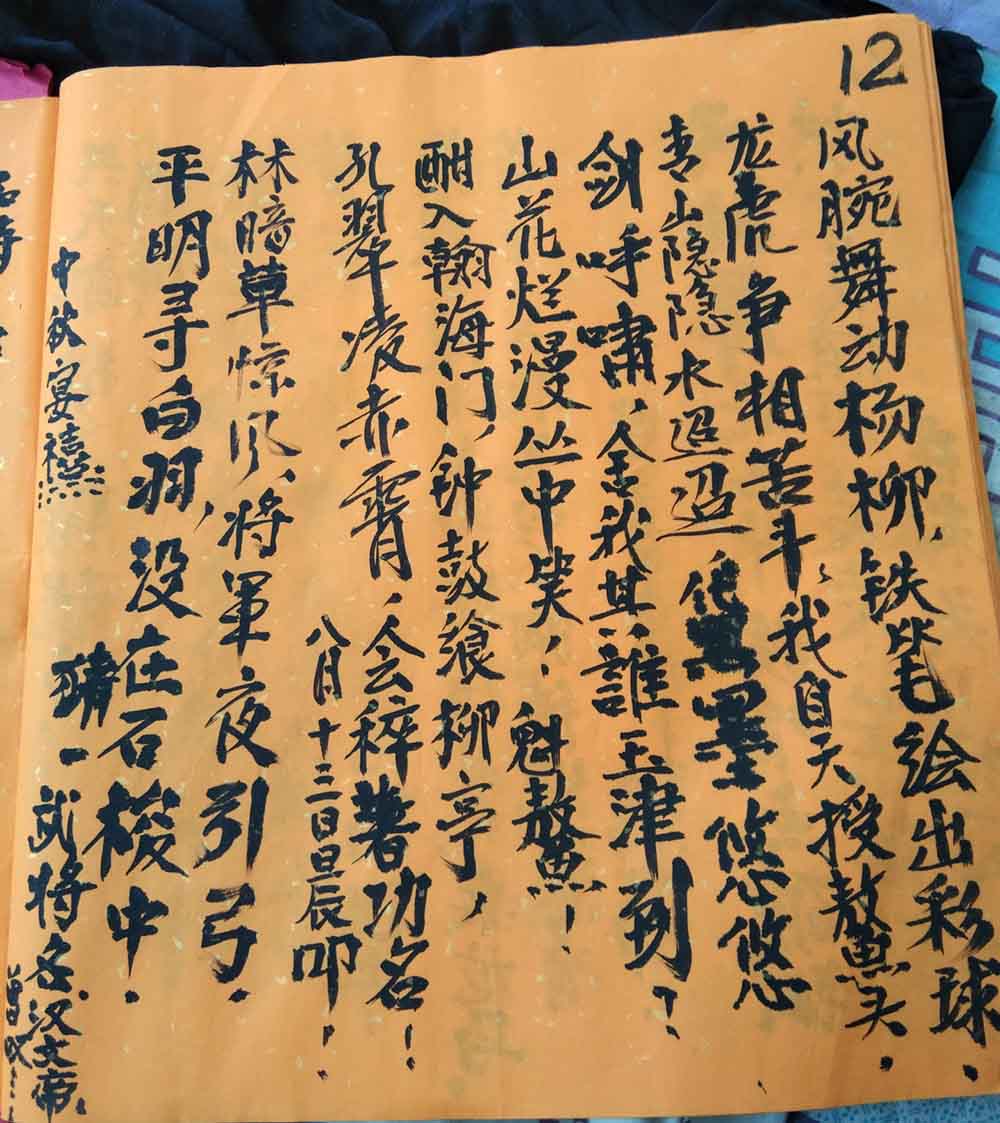 12
风腕舞动杨柳，铁笔绘出彩球．
龙虎争相苦斗，我自天授鳌头．
青山隐隐水迢迢 墨悠悠
剑呼啸，舍我其誰玉津到？
山花烂漫丛中笑！魁鳌！
酣入翰海门，钟鼓飨柳亭，
孔翠凌赤霄，会稡著功名！
八月十三日旦辰叩！
林暗草惊风、将軍夜引弓．
平明寻白羽，没在石梭中．
猜一武将名汉文帝．
中秋宴禧